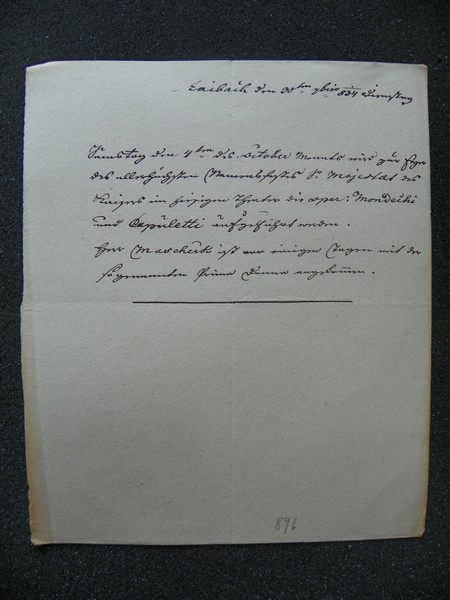 Laibach den 30ten 7bris 834 Dienstag
Samstag den 4ten des October Monats wird zur Feyer
des allerhöchsten Namensfestes Sr Majestät des
Kaisers im hiesigen Theater die Oper: Mondechi
und Capuletti aufgeführt werden.
Herr Maschek ist vor einigen Tagen mit der
sogenannten Prima Donna angekommen.
896